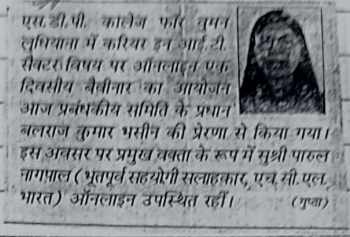 एस.डी.पी. कालेज फॉर वुमन
लुधियाना में करियर इन आई.टी.
सैक्टर विषय पर ऑनलाइन एक
दिवसीय वैबीनार का आयोजन
आज प्रबंधकीय समिति के प्रधान
बलराज कुमार भसीन की प्रेरणा से किया गया।
इस अवसर पर प्रमुख वक्ता के रूप में सुश्री पारुल
नागपाल ( भूतपूर्व सहयोगी सलाहकार, एच.सी.एल.
भारत) ऑनलाइन उपस्थित रहीं। (गुप्ता)